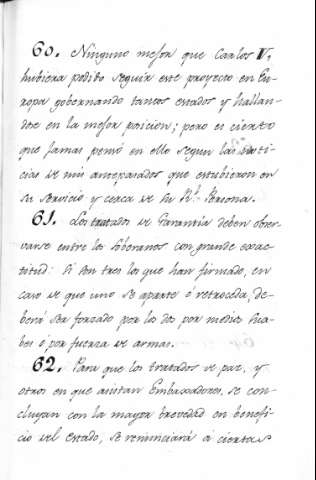 60. Ninguno mejor que Carlos V,
hubiera podido seguir este proyecto en Eu-
ropa gobernando tantos estados y hallan-
dose en la mejor posicion; pero es cierto
que jamas pensó en ello segun las noti-
cias de mis antepasados que estubieron en
su servicio y cerca de su Rl. Persona.
61. Los tratados de Garantia deben obser-
varse entre los Soberanos con grande exac-
titud: Si son tres los que han firmado, en
caso de que uno se aparte ó retroceda, de-
berá ser forzado por los dos por medios sua-
bes ó por fuerza de armas.
62. Para que los tratados de paz, y
otros en que asistan Embaxadores, se con-
cluyan con la mayor brevedad en benefi-
cio del estado, se renunciará á ciertas